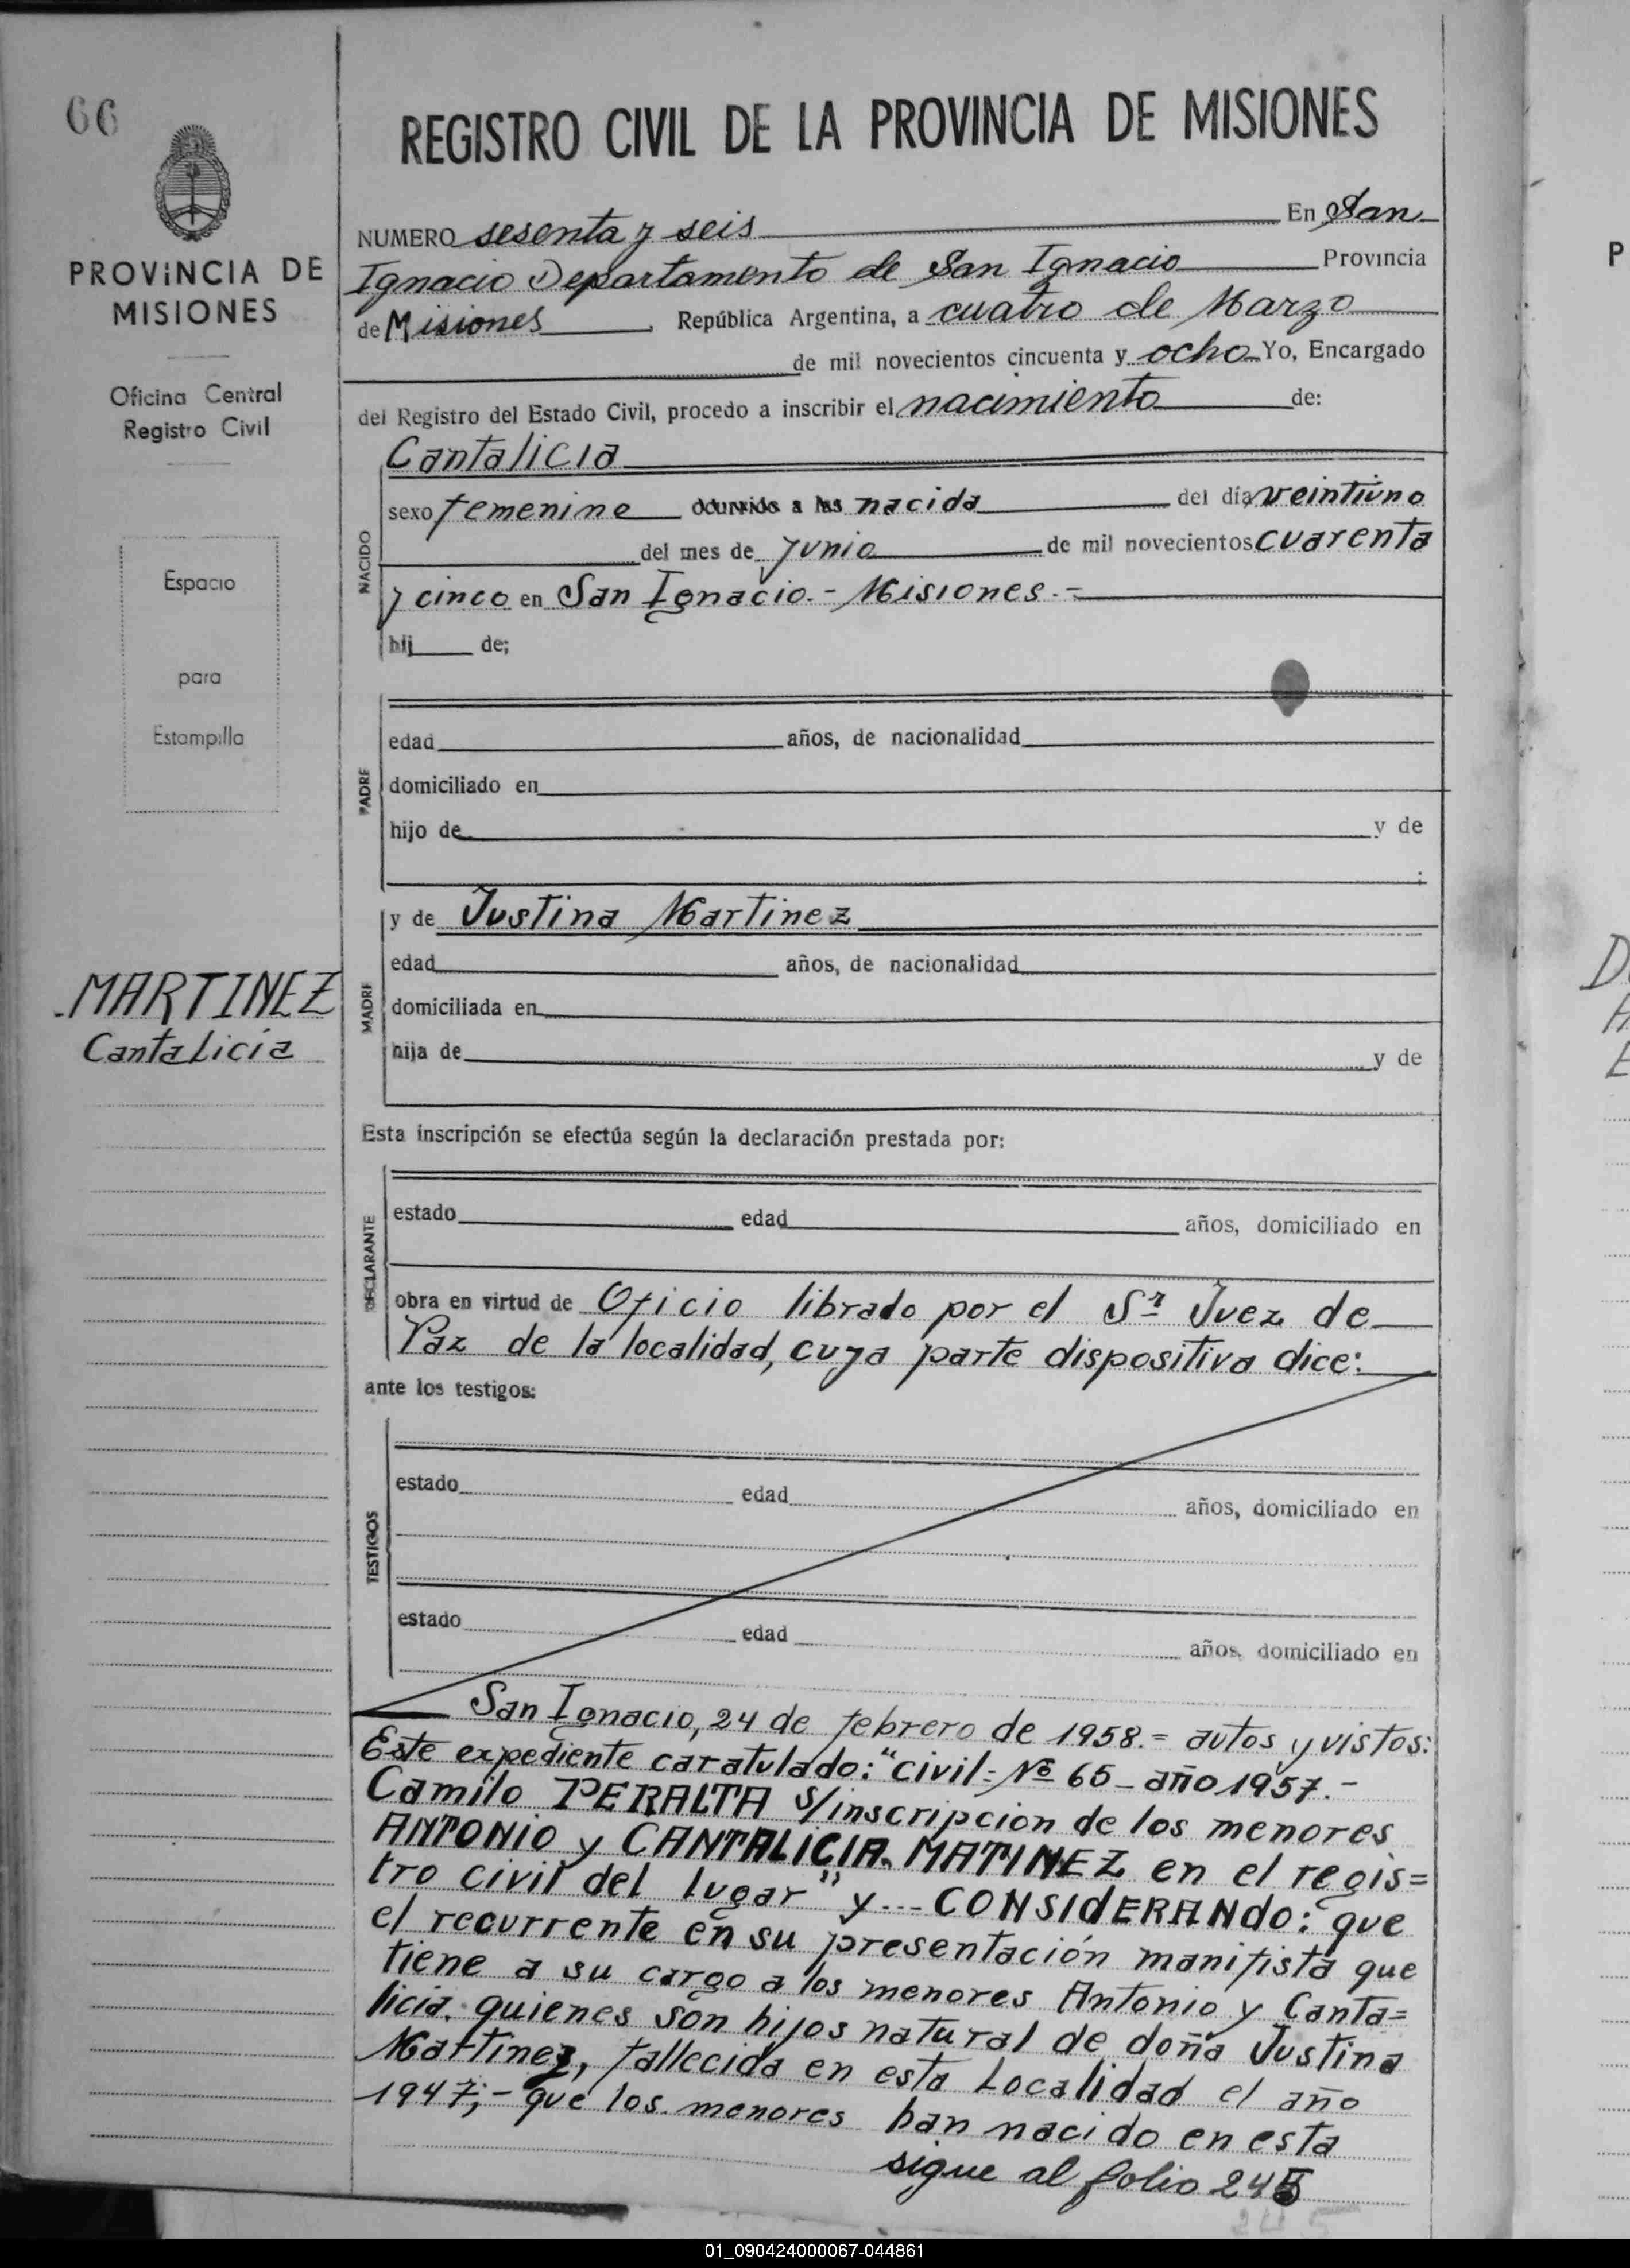 66
PROVINCIA DE
MISIONES
Oficina Central
Registro Civil
Espacio
para
Estampilla
MARTINEZ
Cantalicia
REGISTRO CIVIL DE LA PROVINCIA DE MISIONES
NUMERO sesenta y seis En San
Ignacio Departamento de San Ignacio Provincia
de Misiones, República Argentina, a cuatro de Marzo
de mil novecientos cincuenta y ocho Yo, Encargado
del Registro del Estado Civil, procedo a inscribir el nacimiento de:
NACIDO
Cantalicia
sexo femenino ocurrido a las nacida del día veintiuno
del mes de junio de mil novecientos cuarenta
y cinco en San Ignacio.- Misiones.-
hij de;
PADRE
edad años, de nacionalidad
domiciliado en
hijo de y de
;
MADRE
y de Justina Martinez
edad años, de nacionalidad
domiciliada en
hija de y de
Esta inscripción se efectúa según la declaración prestada por:
DECLARANTE
estado edad años, domiciliado en
obra en virtud de Oficio librado por el Sr Juez de
Paz de la localidad, cuya parte dispositiva dice:
ante los testigos:
TESTIGOS
estado edad años, domiciliado en
estado edad años, domiciliado en
San Ignacio, 24 de febrero de 1958.= autos y vistos:
Este expediente caratulado: "civil- Nº 65- año 1957.-
Camilo PERALTA s/inscripcion de los menores
ANTONIO y CANTALICIA MATINEZ en el regis=
tro civil del lugar" y... CONSIdERANdo: que
el recurrente en su presentación manifista que
tiene a su cargo a los menores Antonio y Canta=
licia. quienes son hijos natural de doña Justina
Martinez, fallecida en esta Localidad el año
1947;- que los menores han nacido en esta
sigue al folio 245
245
P
01_090424000067-044861